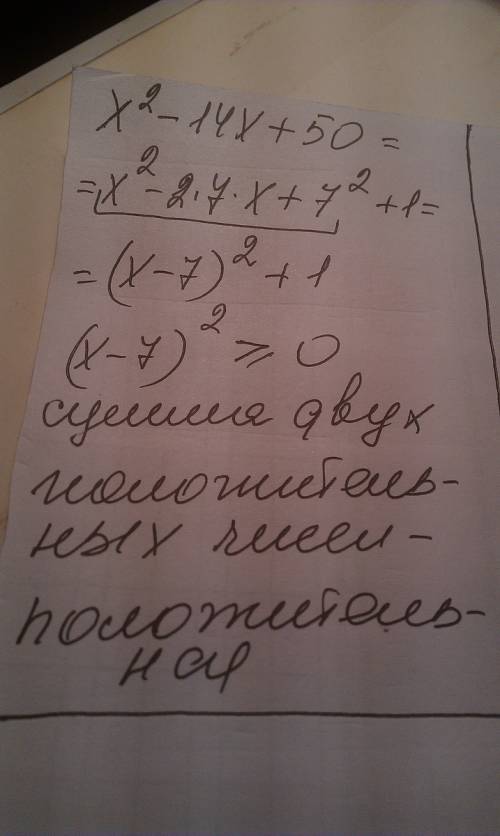 x² - 14x + 50 =
= x² - 2·7·x + 7² + 1 =
= (x - 7)² + 1
(x - 7)² ⩾ 0
сумма двух
положитель-
ных чисел -
положитель-
ная